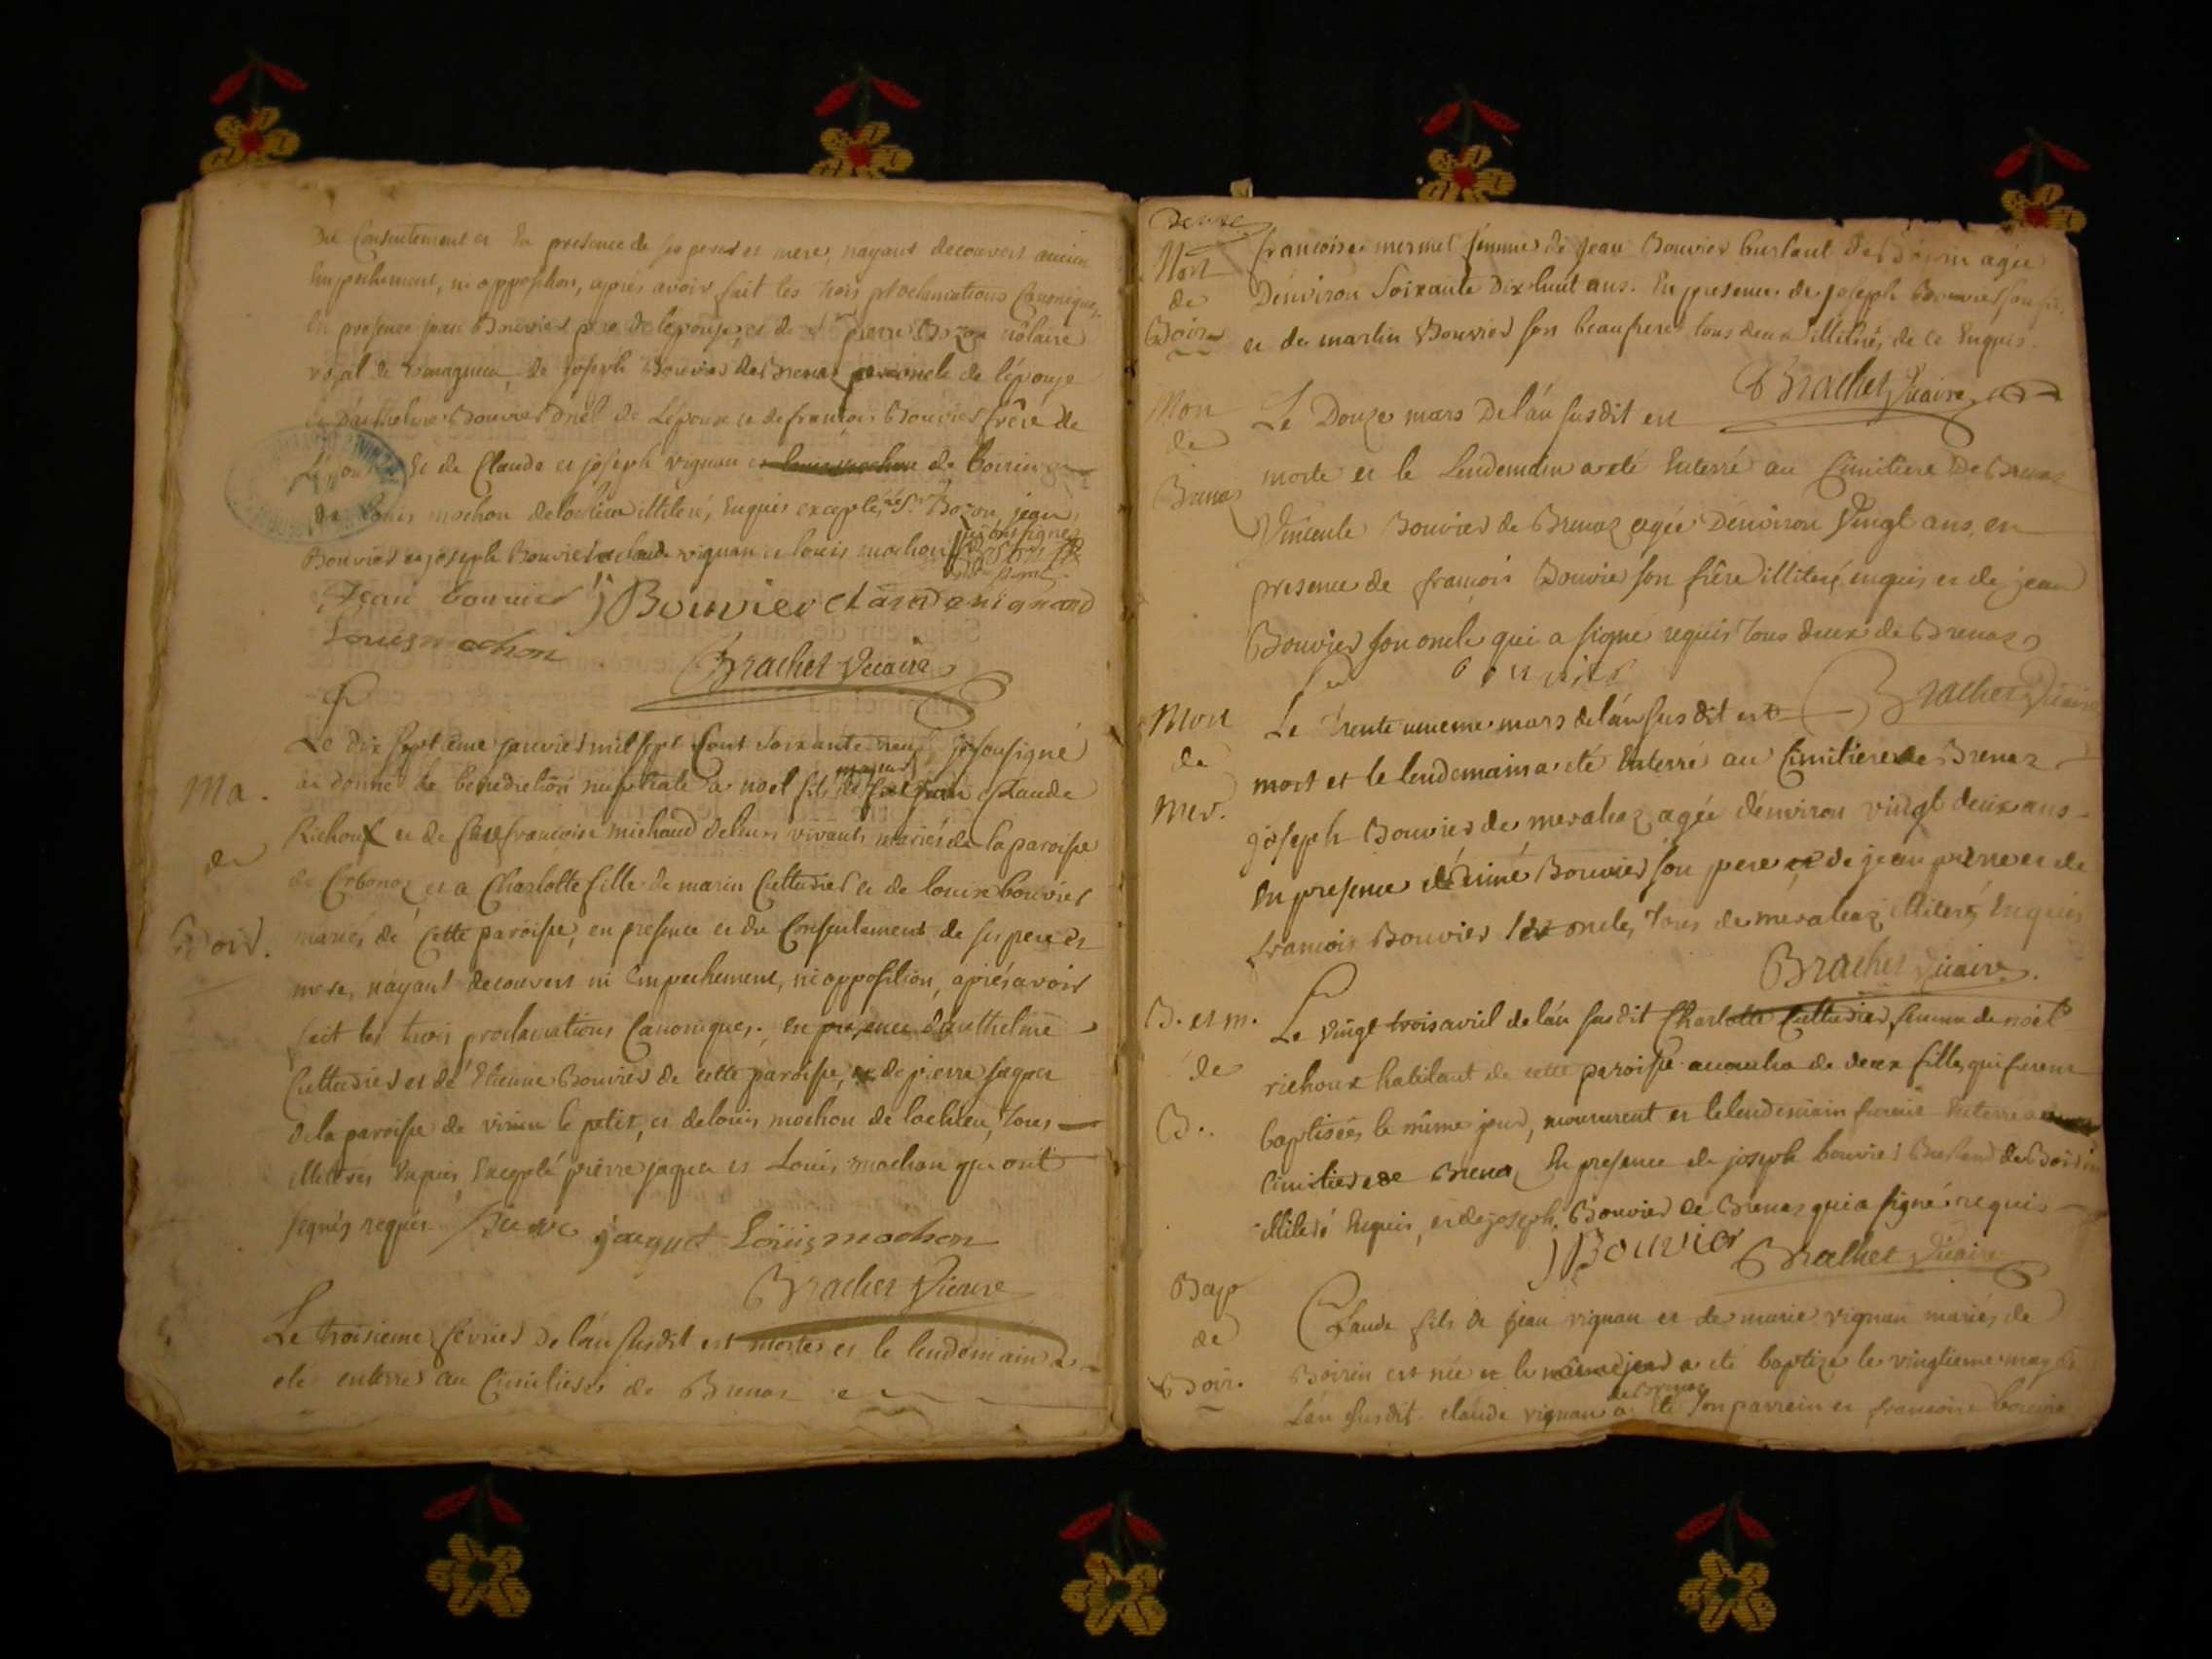 Du Consentement et En presence de ses peres et mere, nayant decouvert aucun
Empechement, ni opposition, aprés avoir fait les trois proclamations Canoniques,
En presence jean Bouvier pere de lepouse, et de Sr pierre Bozon nôtaire
royal de de joseph Bouvier de Brenaz oncle de lépouse
Bouvier de Lepoux et de francois Bouvier frère de
Et de Claude et joseph vignan et de boirin
De Louis mochon de lochieu illiteré, Enquis excepté, Sr. Bozon, jean
Bouvier et joseph Bouvier et claude vignan et louis mochon qui ont signé
Jean bouvier j Bouvier
Louis mochon
Brachet Vicaire
Ma.
de
Boir.
Le dix septieme janvier mil sept Cent Soixante neuf je sousigné
ai donné la benediction nuptiale a noel fils majeur de Claude
Richoux et de francoise michaud de leurs vivants mariés de la paroisse
de Corbonoz et a Charlotte fille de marin Cultadier et de louise bouvier
mariés de cette paroisse, en presence et du Consentement de ses pere et
mere, nayant decouvert ni Empechement, ni opposition, aprés avoir
fait les trois proclamations Canoniques. En presence d'anthelme
Cultadier et de Etienne Bouvier de cette paroisse, et de pierre jaquet
de la paroisse de virieu le petit, et de louis mochon de lochieu, tous
illiterés Enquis Excepté pierre jaquet et Louis mochon qui ont
signés requis. jaquet Louis mochon
Brachet Vicaire
Le troisieme fevrier de l'an susdit est morte et le lendemain a
eté enterré au Cimitiere de Brenaz
Mort
de
Boirin
francoise mermet femme de jean Bouvier de Boirin agée
Denviron Soixante Dix huit ans. En presence de joseph Bouvier son fils
et de martin Bouvier son beaufrere tous deux illiterés, de ce Enquis.
Brachet Vicaire
Mort
de
Brenaz
Le Douze mars De l'an susdit est
morte et le Lendemain a eté Enterré au Cimitiere De Brenaz
Vincente Bouvier de Brenaz agée Denviron Vingt ans, en
presence de francois Bouvier son frère illiteré, enquis et de jean
Bouvier son oncle qui a signé requis Tous deux de Brenaz
bouvier
Brachet Vicaire
Mort
de
Mer.
Le Trente unieme mars de l'an susdit est
mort et le lendemain a eté Enterré au Cimitiere de Brenaz
joseph Bouvier de meraleaz agée d'environ vingt deux ans
En presence d'aimé Bouvier son pere et de jean pierre et de
francois Bouvier oncle, Tous de meraleaz illiterés Enquis
Brachet Vicaire.
B. et m.
de
B.
Le vingt trois avril de l'an susdit Charlotte Cultadier femme de noël
richoux habitant de cette paroisse acoucha de deux filles qui furent
baptisées le même jour, moururent et le lendemain furent Enterré
Cimitiere de Brenaz En presence de joseph bouvier de Boirin
illiteré Enquis, et de joseph Bouvier de Brenaz qui a signé requis
j Bouvier Brachet Vicaire
Bap
de
Boir.
Claude fils de jean vignan et de marie vignan mariés de
Boirin est née et le même jour a eté baptizé le vingtieme may de
L'an susdit. claude vignan de Brenaz a eté son parrein et francoise bouvier